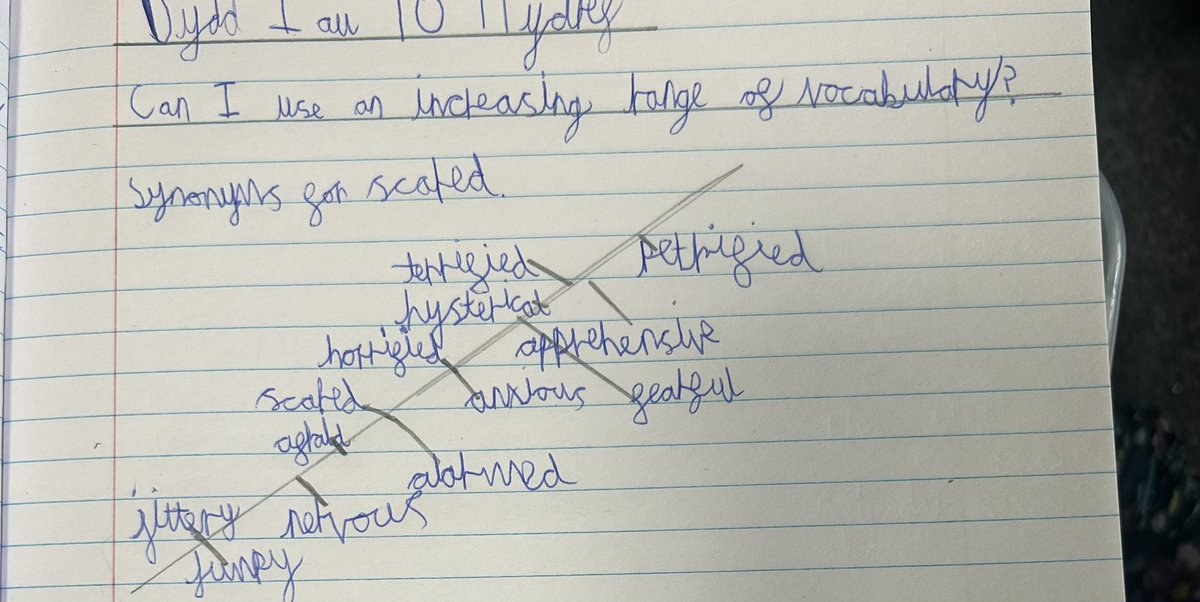 Dydd Iau 10 Hydref
Can I use an increasing range of vocabulary?
Synonyms for scared.
terrified petrified
hysterical
horrified apprehensive
scared anxious fearful
afraid
alarmed
jittery nervous
jumpy